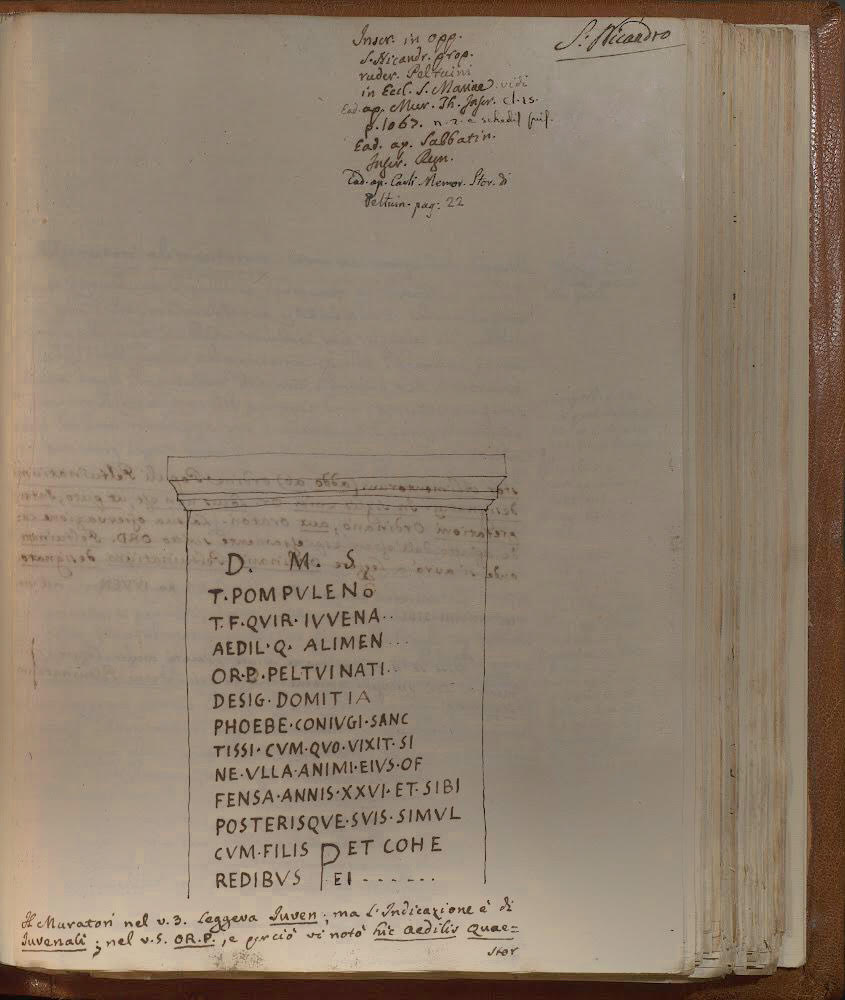 S. Nicandro
Inscr. in opp.
S. Nicandr. prop.
ruder. Peltuini
in Eccl. S. Mariae vidi
Ead. ap. Mur. Th. Inscr. cl. 15.
p. 1067. n. 2. e schedis suis.
Ead. ap. Sabbatin.
Inscr.
Ead. ap. Carli Memor. Stor. di
Peltuin. pag: 22
D. M. S
T. POMPVLENo
T. F. QVIR. IVVENA..
AEDIL. Q. ALIMEN...
OR.P. PELTVINATI..
DESIG. DOMITIA
PHOEBE. CONIVGI. SANC
TISSI. CVM. QVO. VIXIT. SI
NE. VLLA. ANIMI. EIVS. OF
FENSA. ANNIS. XXVI. ET. SIBI
POSTERISQVE. SVIS. SIMVL
CVM. FILIS P ET COHE
REDIBVS EI - - - - - -
Il Muratori nel v. 3. leggeva Iuven; ma l'Indicazione è di
Iuvenali; nel v. 5. OR.P., e perciò vi notò hic aedilis Quae=
stor